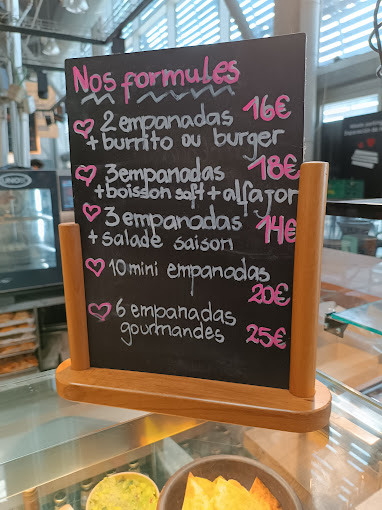 Nos formules
2 empanadas 16€
+ burrito ou burger
3 empanadas 18€
+ boisson soft + alfajor
3 empanadas 14€
+ salade saison
10 mini empanadas
20€
6 empanadas
gourmandes 25€